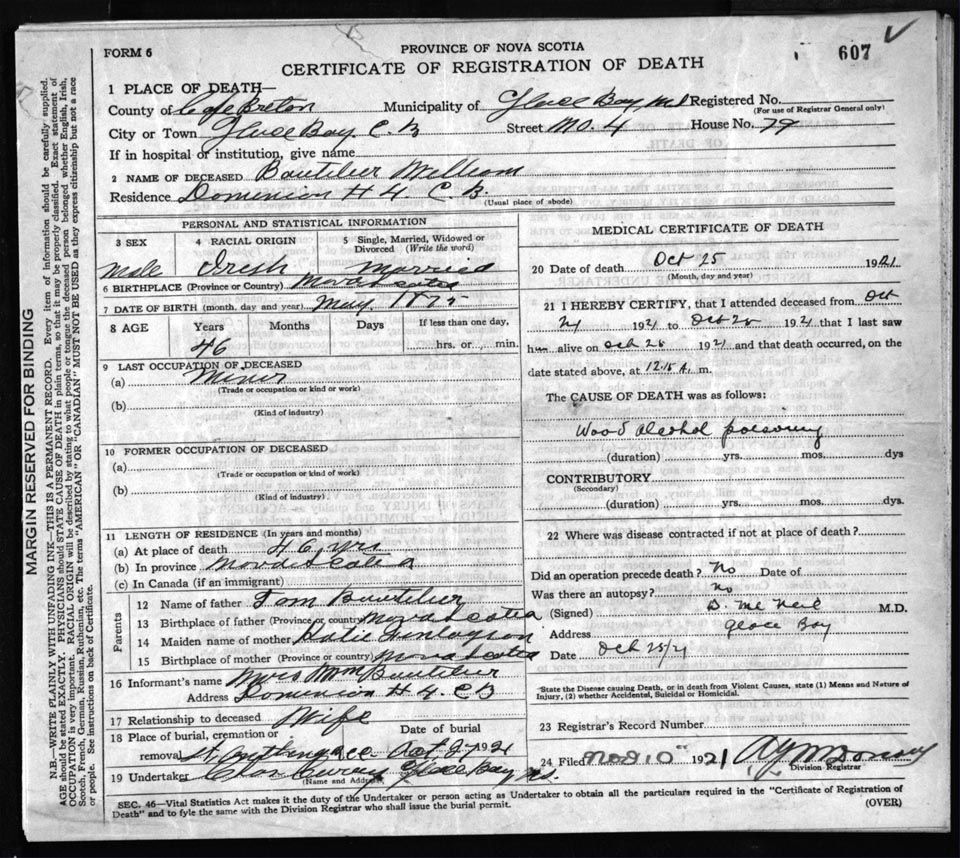 FORM 6
PROVINCE OF NOVA SCOTIA
607
CERTIFICATE OF REGISTRATION OF DEATH
1 PLACE OF DEATH—
County of Cape Breton Municipality of Glace Bay Registered No.
(For use of Registrar General only)
City or Town Glace Bay C.B Street No. 4 House No. 79
If in hospital or institution, give name
2 NAME OF DECEASED Boutilier William
Residence Dominion # 4 C.B.
(Usual place of abode)
PERSONAL AND STATISTICAL INFORMATION
3 SEX 4 RACIAL ORIGIN 5 Single, Married, Widowed or Divorced (Write the word)
Male Irish Married
6 BIRTHPLACE (Province or Country) Nova Scotia
7 DATE OF BIRTH (month, day and year) May. 1875
8 AGE Years Months Days If less than one day,
46 hrs. or min.
9 LAST OCCUPATION OF DECEASED
(a) Miner
(Trade or occupation or kind or work)
(b)
(Kind of industry)
10 FORMER OCCUPATION OF DECEASED
(a)
(Trade or occupation or kind of work)
(b)
(Kind of industry)
11 LENGTH OF RESIDENCE (In years and months)
(a) At place of death 46 yrs
(b) In province Nova Scotia
(c) In Canada (if an immigrant)
Parents
12 Name of father Tom Boutilier
13 Birthplace of father (Province or country) Nova Scotia
14 Maiden name of mother Katie Finlayson
15 Birthplace of mother (Province or country) Nova Scotia
16 Informant's name Mrs Wm Boutilier
Address Dominion # 4. C B
17 Relationship to deceased Wife
18 Place of burial, cremation or Date of burial
removal St. Oct 1921
19 Undertaker Chas Curry Glace Bay N.S.
(Name and Address)
MEDICAL CERTIFICATE OF DEATH
20 Date of death Oct 25 1921
(Month, day and year)
21 I HEREBY CERTIFY, that I attended deceased from Oct
1921 to Oct 25 1921 that I last saw
him alive on Oct 25 1921 and that death occurred, on the
date stated above, at 12.15 A. m.
The CAUSE OF DEATH was as follows:
Wood alcohol poisoning
(duration) yrs. mos. dys
CONTRIBUTORY
(Secondary)
(duration) yrs. mos. dys.
22 Where was disease contracted if not at place of death?
Did an operation precede death? No Date of
Was there an autopsy? No
(Signed) D. Mc Neil M.D.
Address Glace Bay
Date Oct 25/21
*State the Disease causing Death, or in death from Violent Causes, state (1) Means and Nature of
Injury, (2) whether Accidental, Suicidal or Homicidal.
23 Registrar's Record Number
24 Filed Nov 10 1921
Division Registrar
SEC. 46—Vital Statistics Act makes it the duty of the Undertaker or person acting as Undertaker to obtain all the particulars required in the "Certificate of Registration of
Death" and to fyle the same with the Division Registrar who shall issue the burial permit.
(OVER)
MARGIN RESERVED FOR BINDING
N.B.—WRITE PLAINLY WITH UNFADING INK—THIS IS A PERMANENT RECORD. Every item of information should be carefully supplied.
AGE should be stated EXACTLY. PHYSICIANS should STATE CAUSE OF DEATH in plain terms, so that it may be properly classified. Exact statement of
OCCUPATION is very important. RACIAL ORIGIN will be described by stating to what people or tongue the deceased person belonged whether English, Irish,
Scotch, French, German, Russian, Ruthenian, etc. The terms "AMERICAN" OR "CANADIAN" MUST NOT BE USED as they express citizenship but not a race
or people. See instructions on back of Certificate.